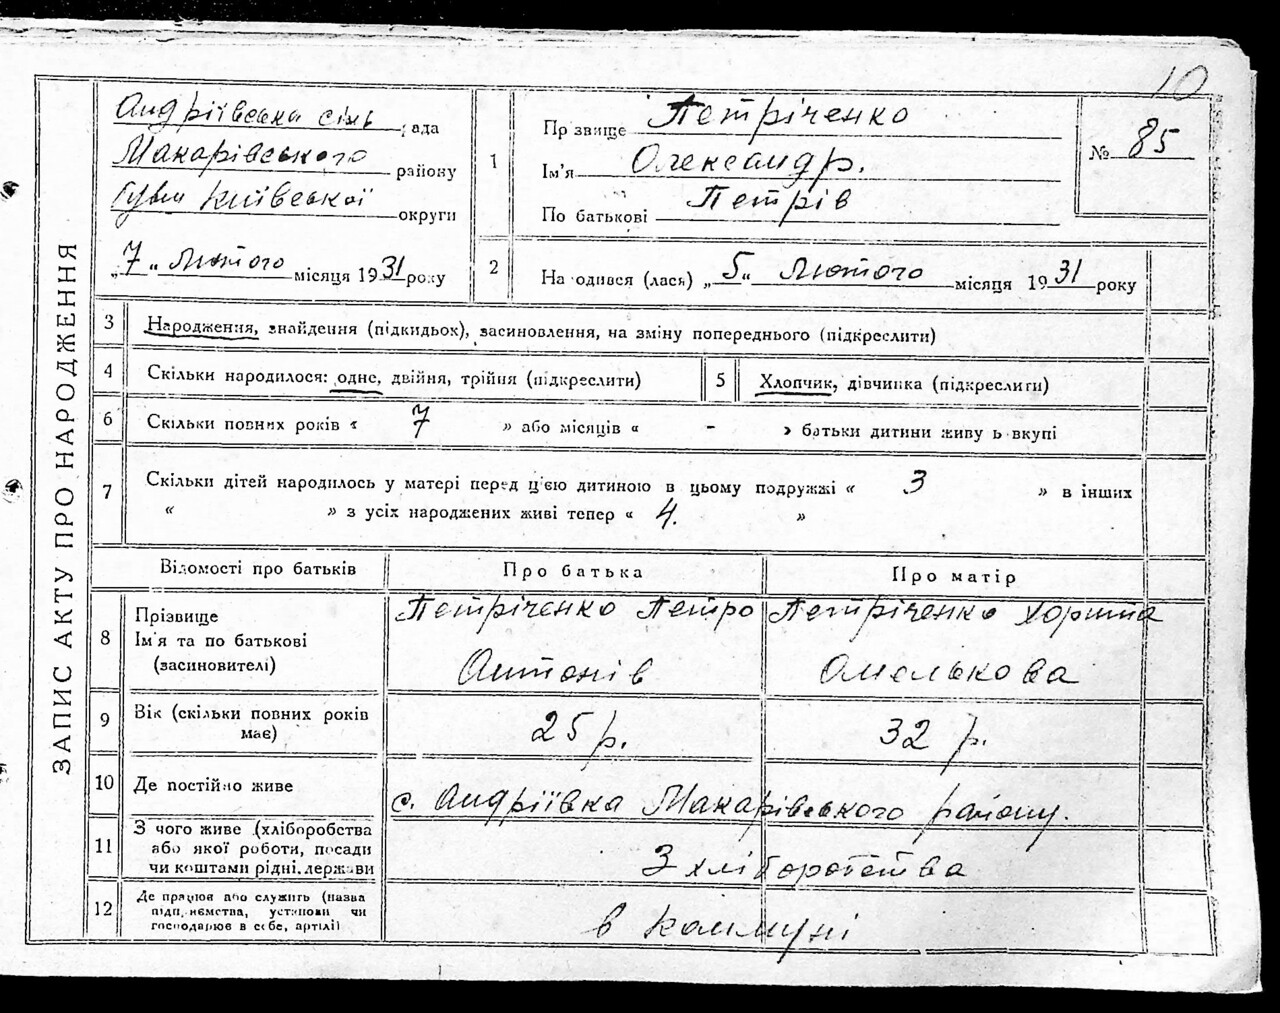 10
ЗАПИС АКТУ ПРО НАРОДЖЕННЯ
Андріївська сіль рада
Макарівського району
Київської округи
„7“ Лютого місяця 1931 року
1
Прізвище Петріченко
Ім'я Олександр.
По батькові Петрів
№ 85
2
На одився (лася) „5“ Лютого місяця 1931 року
3
Народження, знайдення (підкидьок), засиновлення, на зміну попереднього (підкреслити)
4
Скільки народилося: одне, двійня, трійня (підкреслити)
5
Хлопчик, дівчинка (підкреслити)
6
Скільки повних років « 7 » або місяців « - » батьки дитини живу ь вкупі
7
Скільки дітей народилось у матері перед ц'єю дитиною в цьому подружжі « 3 » в інших
« » з усіх народжених живі тепер « 4. »
Відомості про батьків
Про батька
Про матір
8
Прізвище
Ім'я та по батькові
(засиновителі)
Петріченко Петро
Антонів
Петріченко Хортина
Омелькова
9
Вік (скільки повних років
має)
25 р.
32 р.
10
Де постійно живе
с. Андріївка Макарівського району.
11
З чого живе (хліборобства
або якої роботи, посади
чи коштами рідні, держави
З хліборобства
12
Де працює або служить (назва
підприємства, установи чи
господарює в себе, артілі)
в коммуні